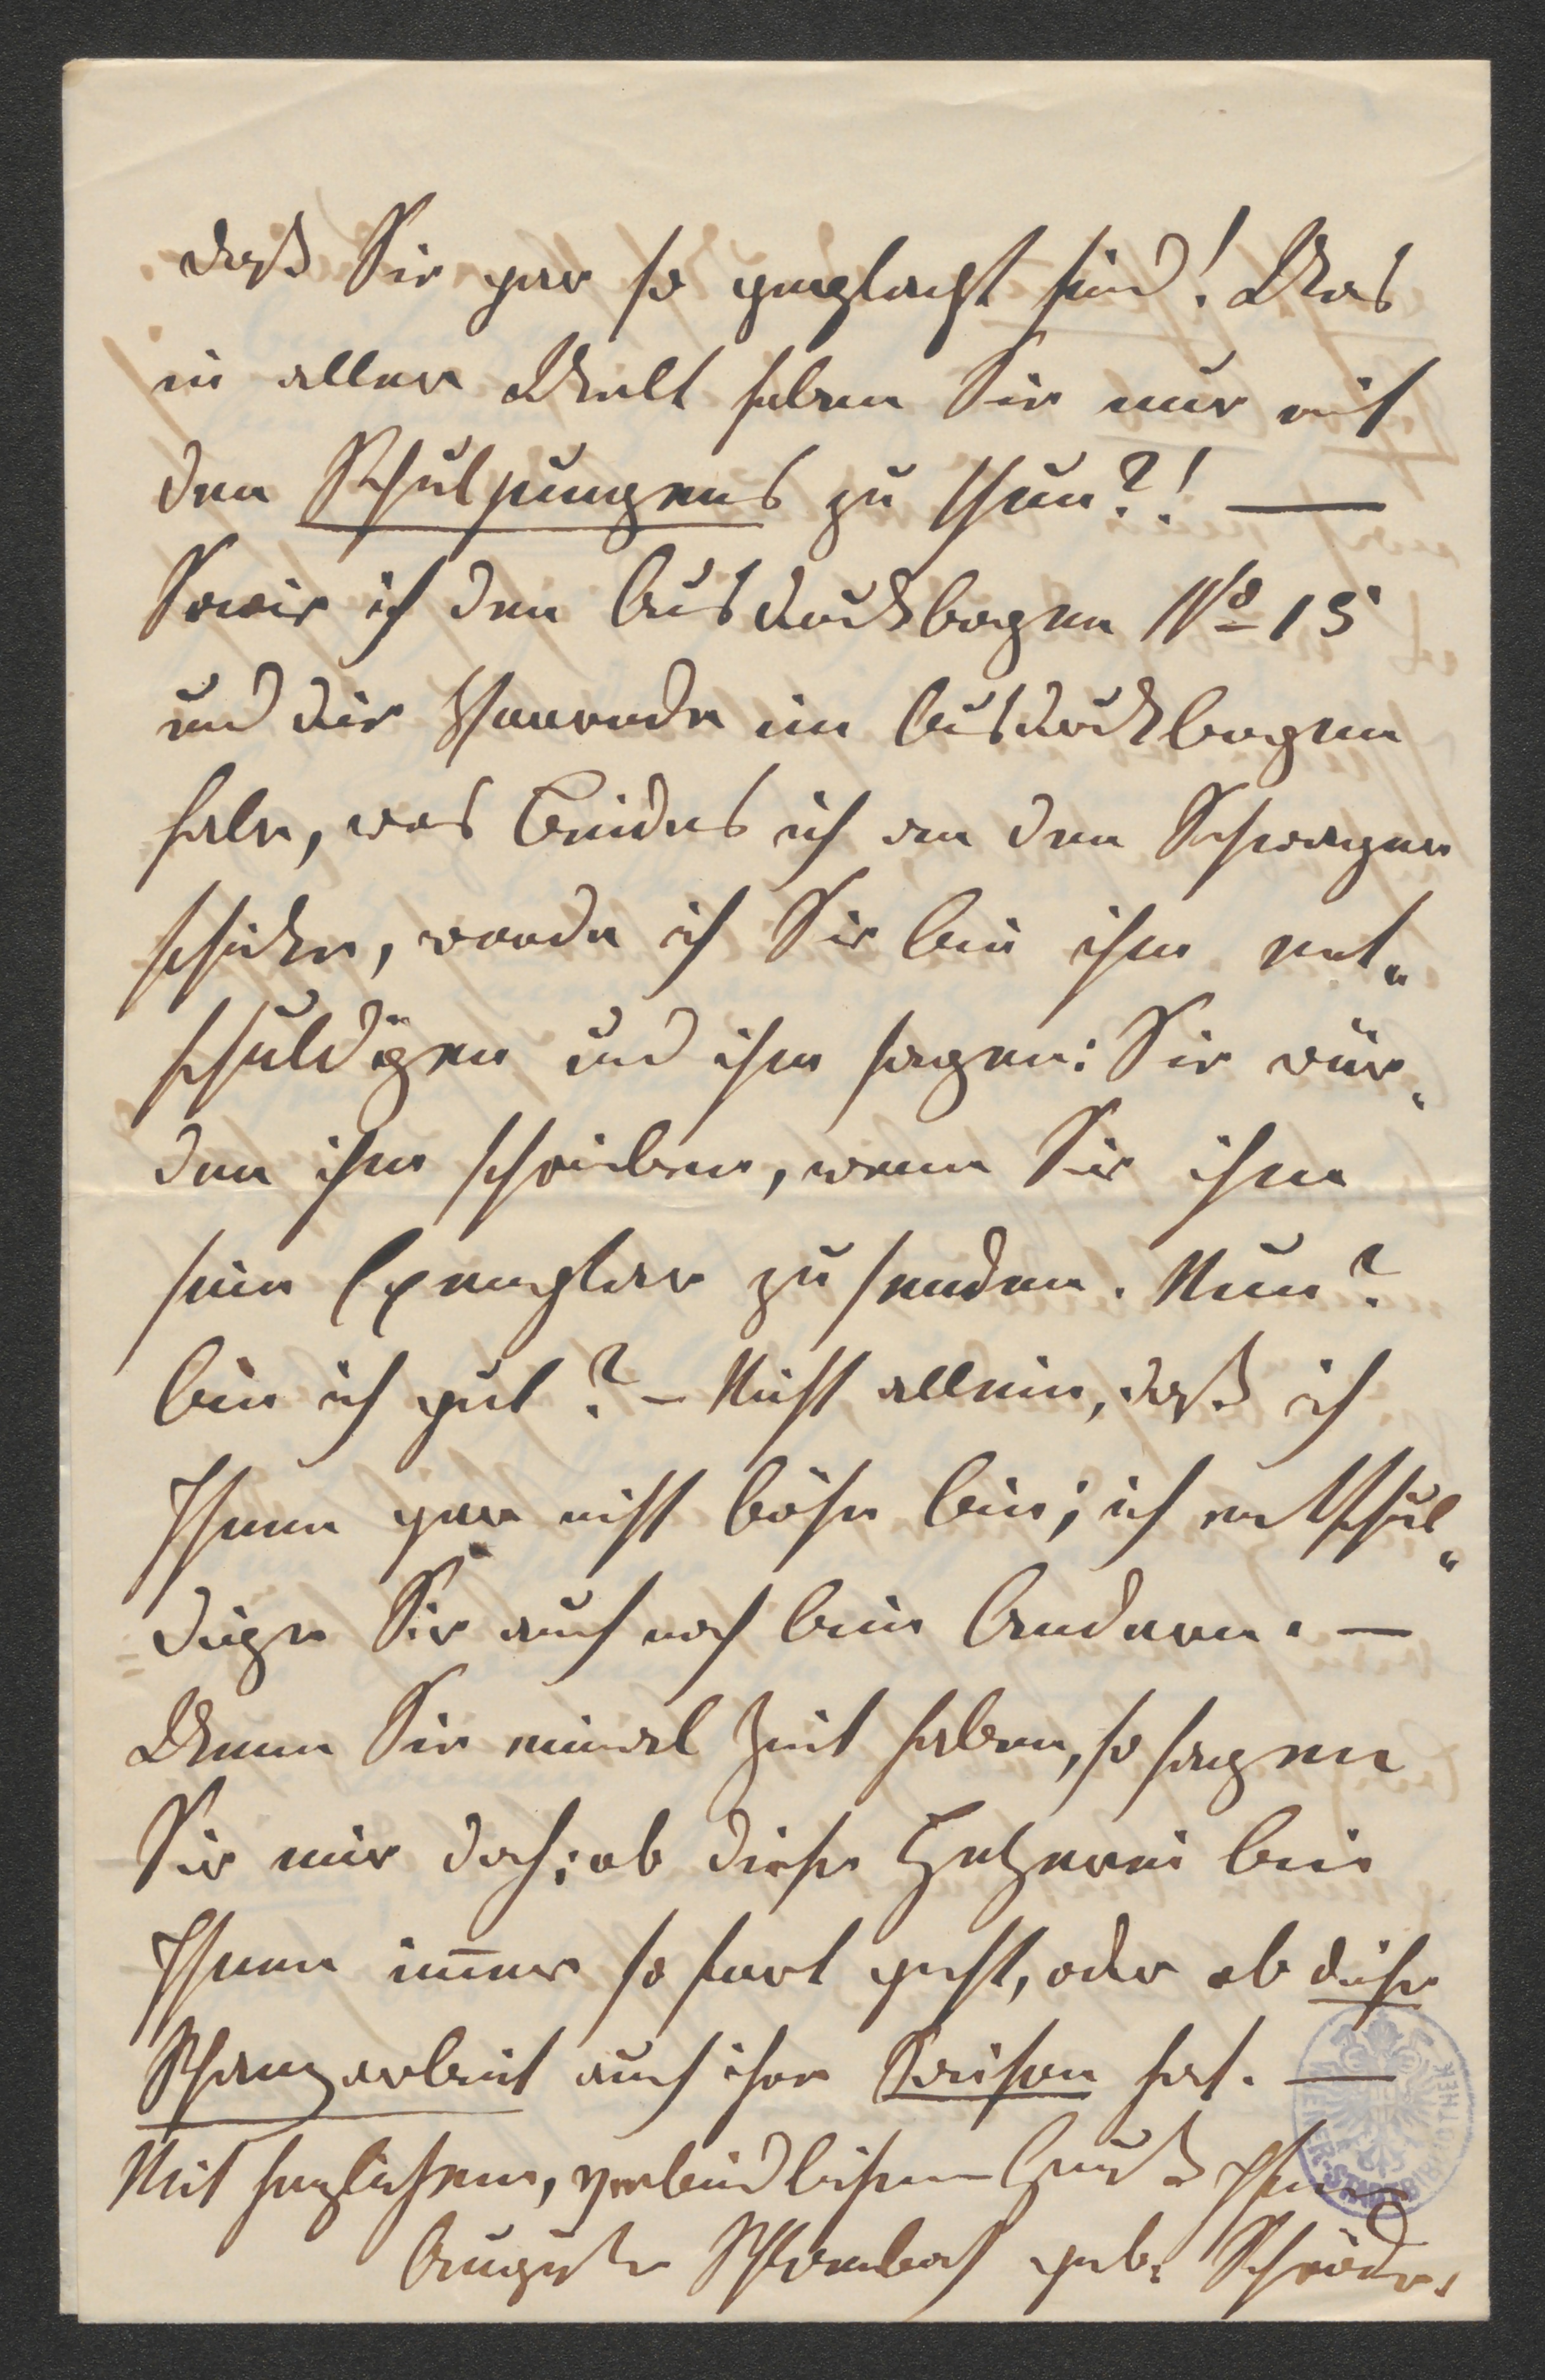 daß Sie gar so geplagt sind! Was
in aller Welt haben Sie nur mit
den Schuljungens zu thun?! —
Sowie ich den Ausdruckbogen No 15
und die Herrede im Ausdruckbogen
habe, was Beides ich an den Schwager
schicke, werde ich Sie bei ihm ent„
schuldigen und ihm sagen: Sie wür„
den ihm schreiben, wenn Sie ihm
sein Exemplar zu senden. Nun?
bin ich gut? – Nicht allein, daß ich
Ihnen gar nicht böse bin; ich entschul„
dige Sie auch noch bei Anderen. —
Wenn Sie einmal Zeit haben, so sagen
Sie mir doch: ob diese Hetzerei bei
Ihnen im̅er so fort geht, oder ob diese
Schanzarbeit auch ihre Saison hat. —
Mit herzlichem, verbindlichem Gruß Ihre
Auguste Schrombach geb. Schröder.